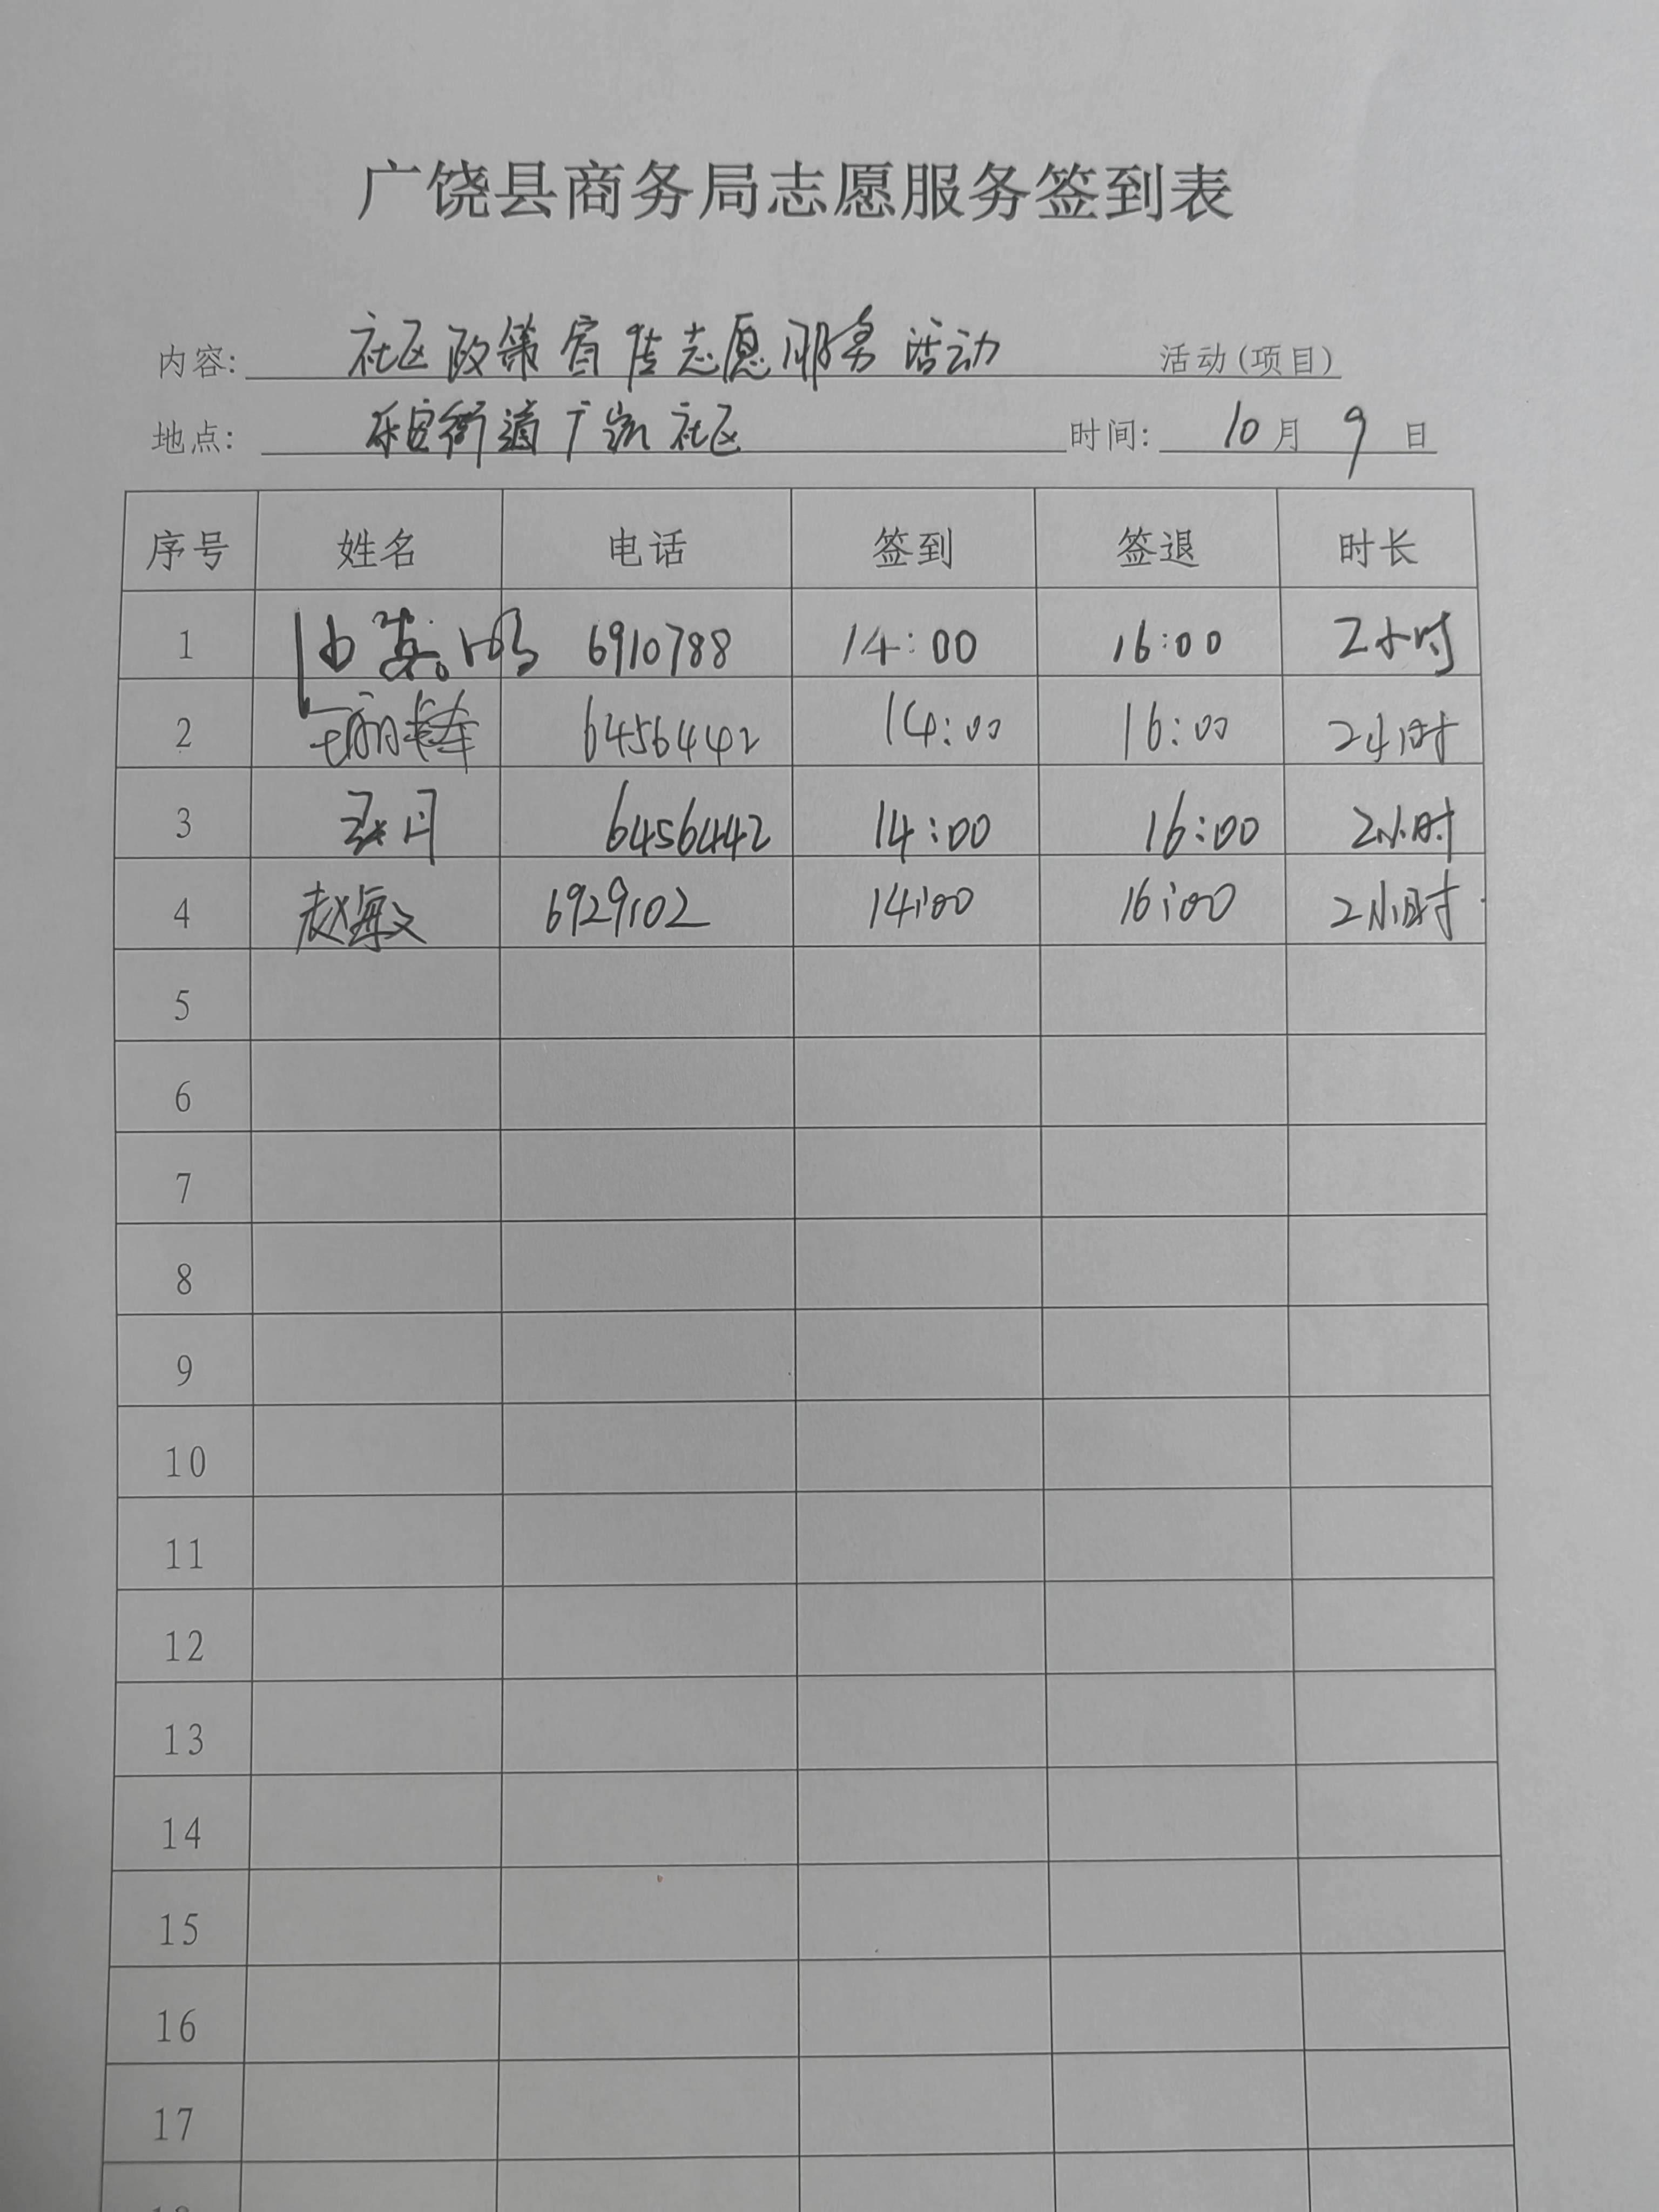 广饶县商务局志愿服务签到表
内容: 社区政策宣传志愿服务活动 活动(项目)
地点: 乐安街道广凯社区 时间: 10月9日
序号 姓名 电话 签到 签退 时长
1 6910788 14:00 16:00 2小时
2 6456442 14:00 16:00 2小时
3 6456442 14:00 16:00 2小时
4 赵海文 6929102 14:00 16:00 2小时
5
6
7
8
9
10
11
12
13
14
15
16
17